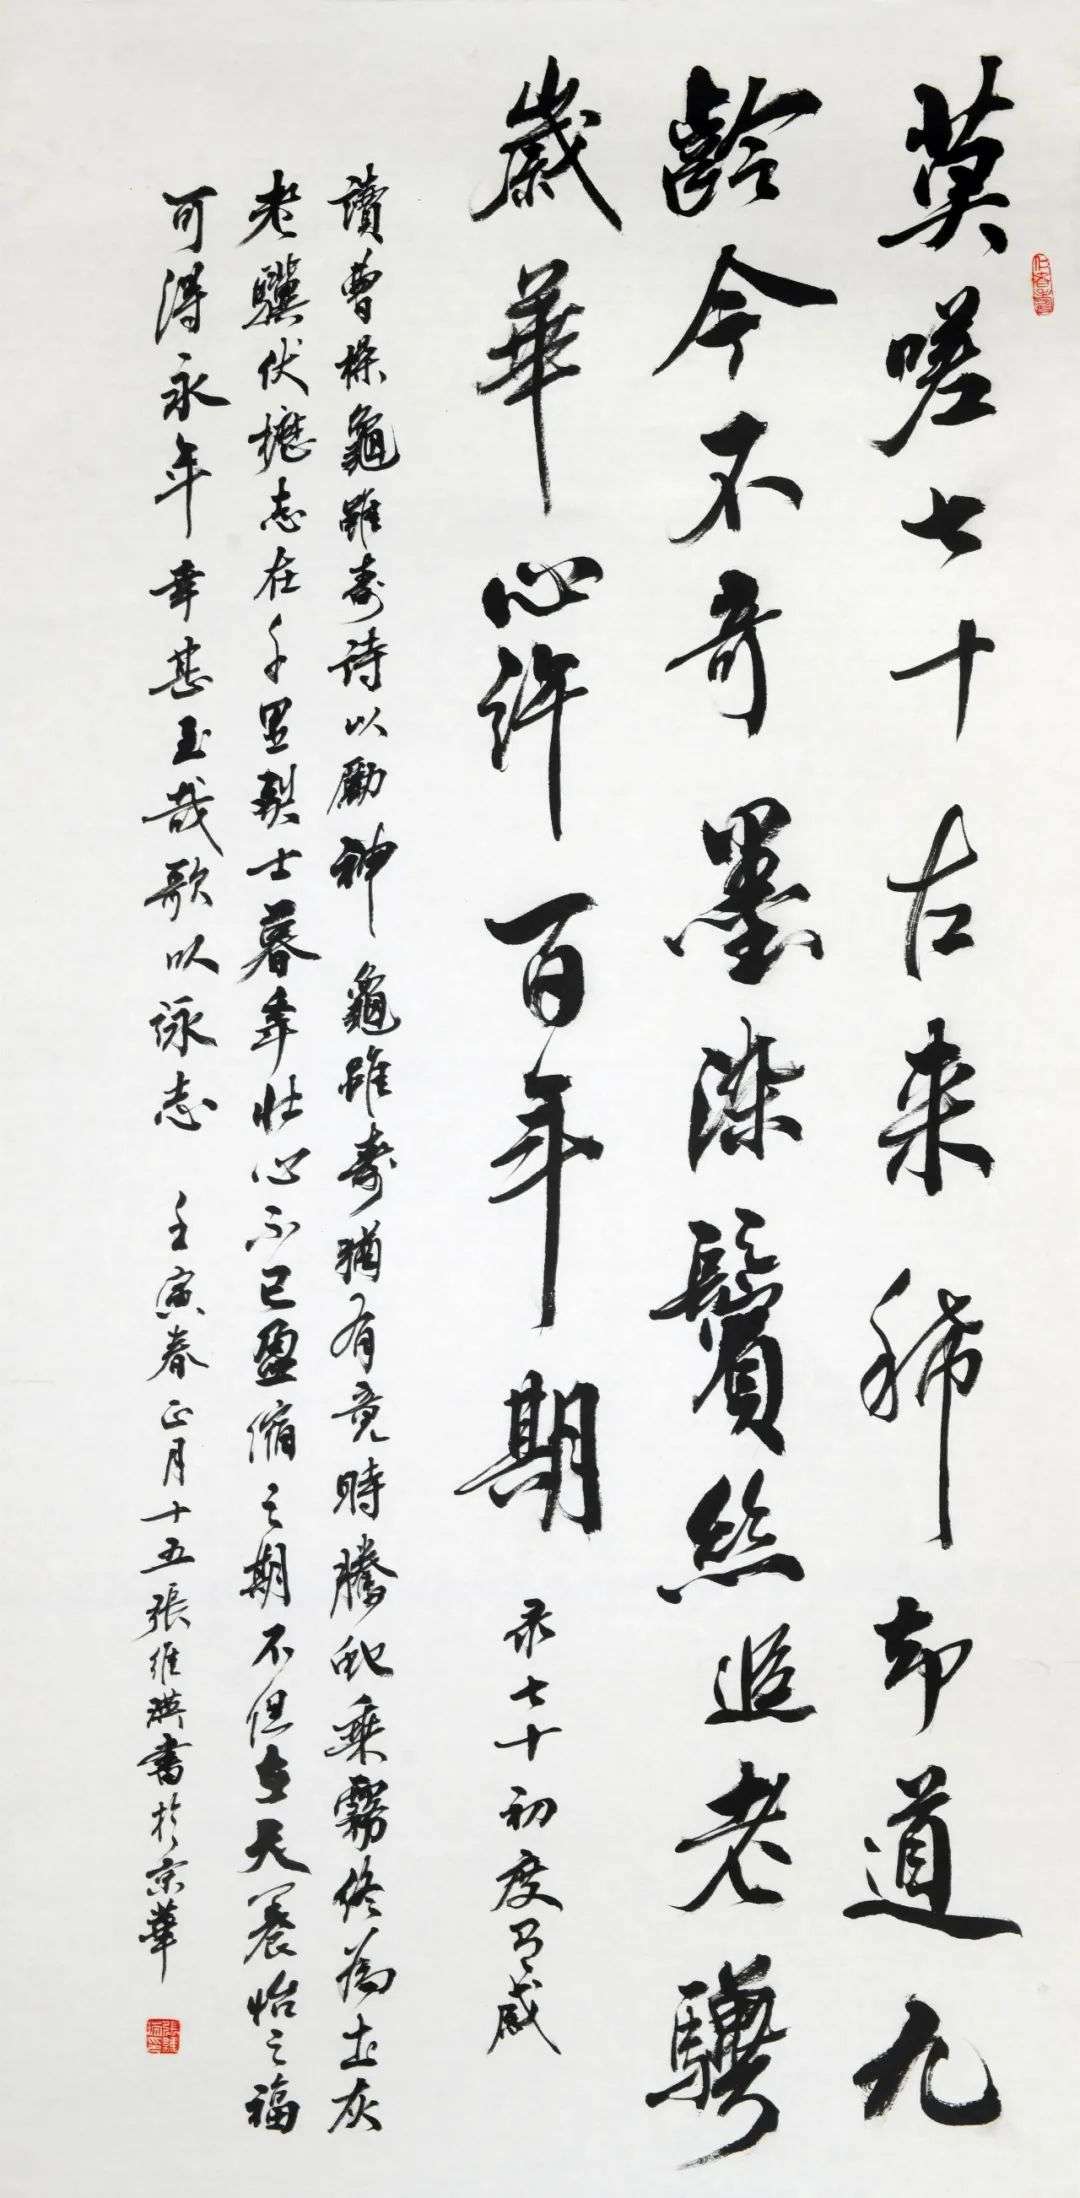 莫嗟七十古来稀却道九
齡今不奇墨染鬢絲追老驥
歲華心許百年期 录七十初度有感
讀曹操龜雖壽詩以勵神 龜雖壽猶有竟時騰蛇乘霧終為土灰
老驥伏櫪志在千里烈士暮年壯心不已盈縮之期不但在天養怡之福
可得永年幸甚至哉歌以詠志 壬寅春正月十五張維瑛書於京華